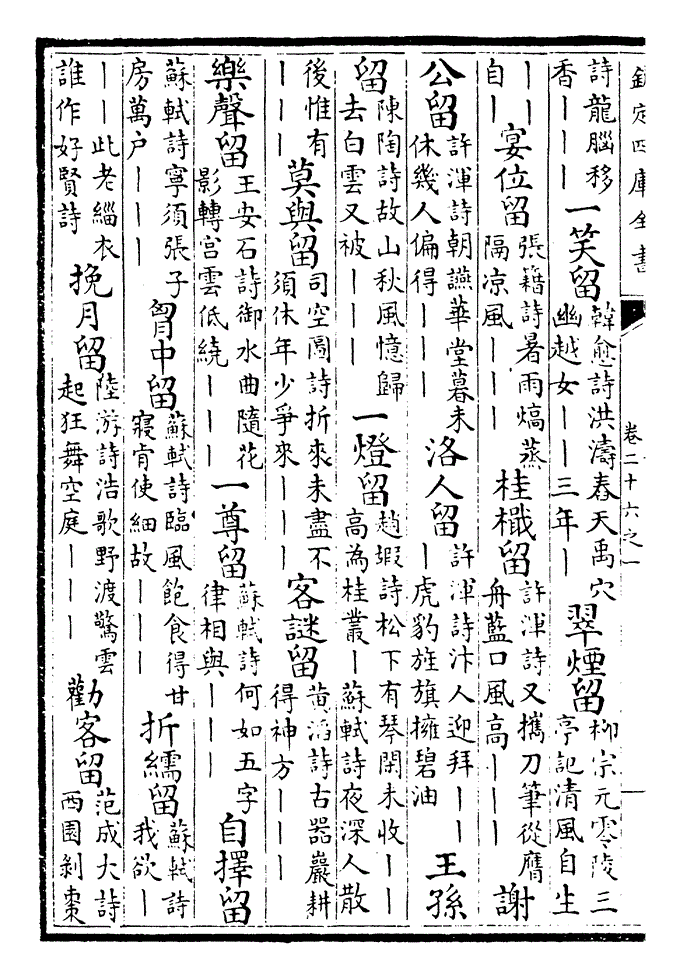 欽定四庫全書
卷二十六之一
詩龍腦移
香｜｜｜
一笑留
韓愈詩洪濤舂天禹穴
幽越女｜｜三年｜
翠煙留
柳宗元零陵三
亭記清風自生
｜｜
自｜
宴位留
張籍詩暑雨熇蒸
隔凉風｜｜｜
桂檝留
許渾詩又攜刀筆從膺
舟藍口風高｜｜｜
謝
公留
許渾詩朝讌華堂暮未
休幾人偏得｜｜｜
洛人留
許渾詩汴人迎拜｜｜
｜虎豹旌旗擁碧油
王孫
留
陳陶詩故山秋風憶歸
去白雲又被｜｜｜
一燈留
趙嘏詩松下有琴閑未收｜｜
高為桂叢｜蘇軾詩夜深人散
後惟有
｜｜｜
莫與留
司空圖詩折來未盡不
須休年少爭來｜｜｜
客謎留
黄滔詩古器巖耕
得神方｜｜｜
樂聲留
王安石詩御水曲隨花
影轉宫雲低繞｜｜｜
一尊留
蘇軾詩何如五字
律相與｜｜｜
自擇留
蘇軾詩寧須張子
房萬户｜｜｜
胷中留
蘇軾詩臨風飽食得甘
寢肯使細故｜｜｜
折繻留
蘇軾詩
我欲｜
｜｜此老緇衣
誰作好賢詩
挽月留
陸游詩浩歌野渡驚雲
起狂舞空庭｜｜｜
勸客留
范成大詩
西園剝棗